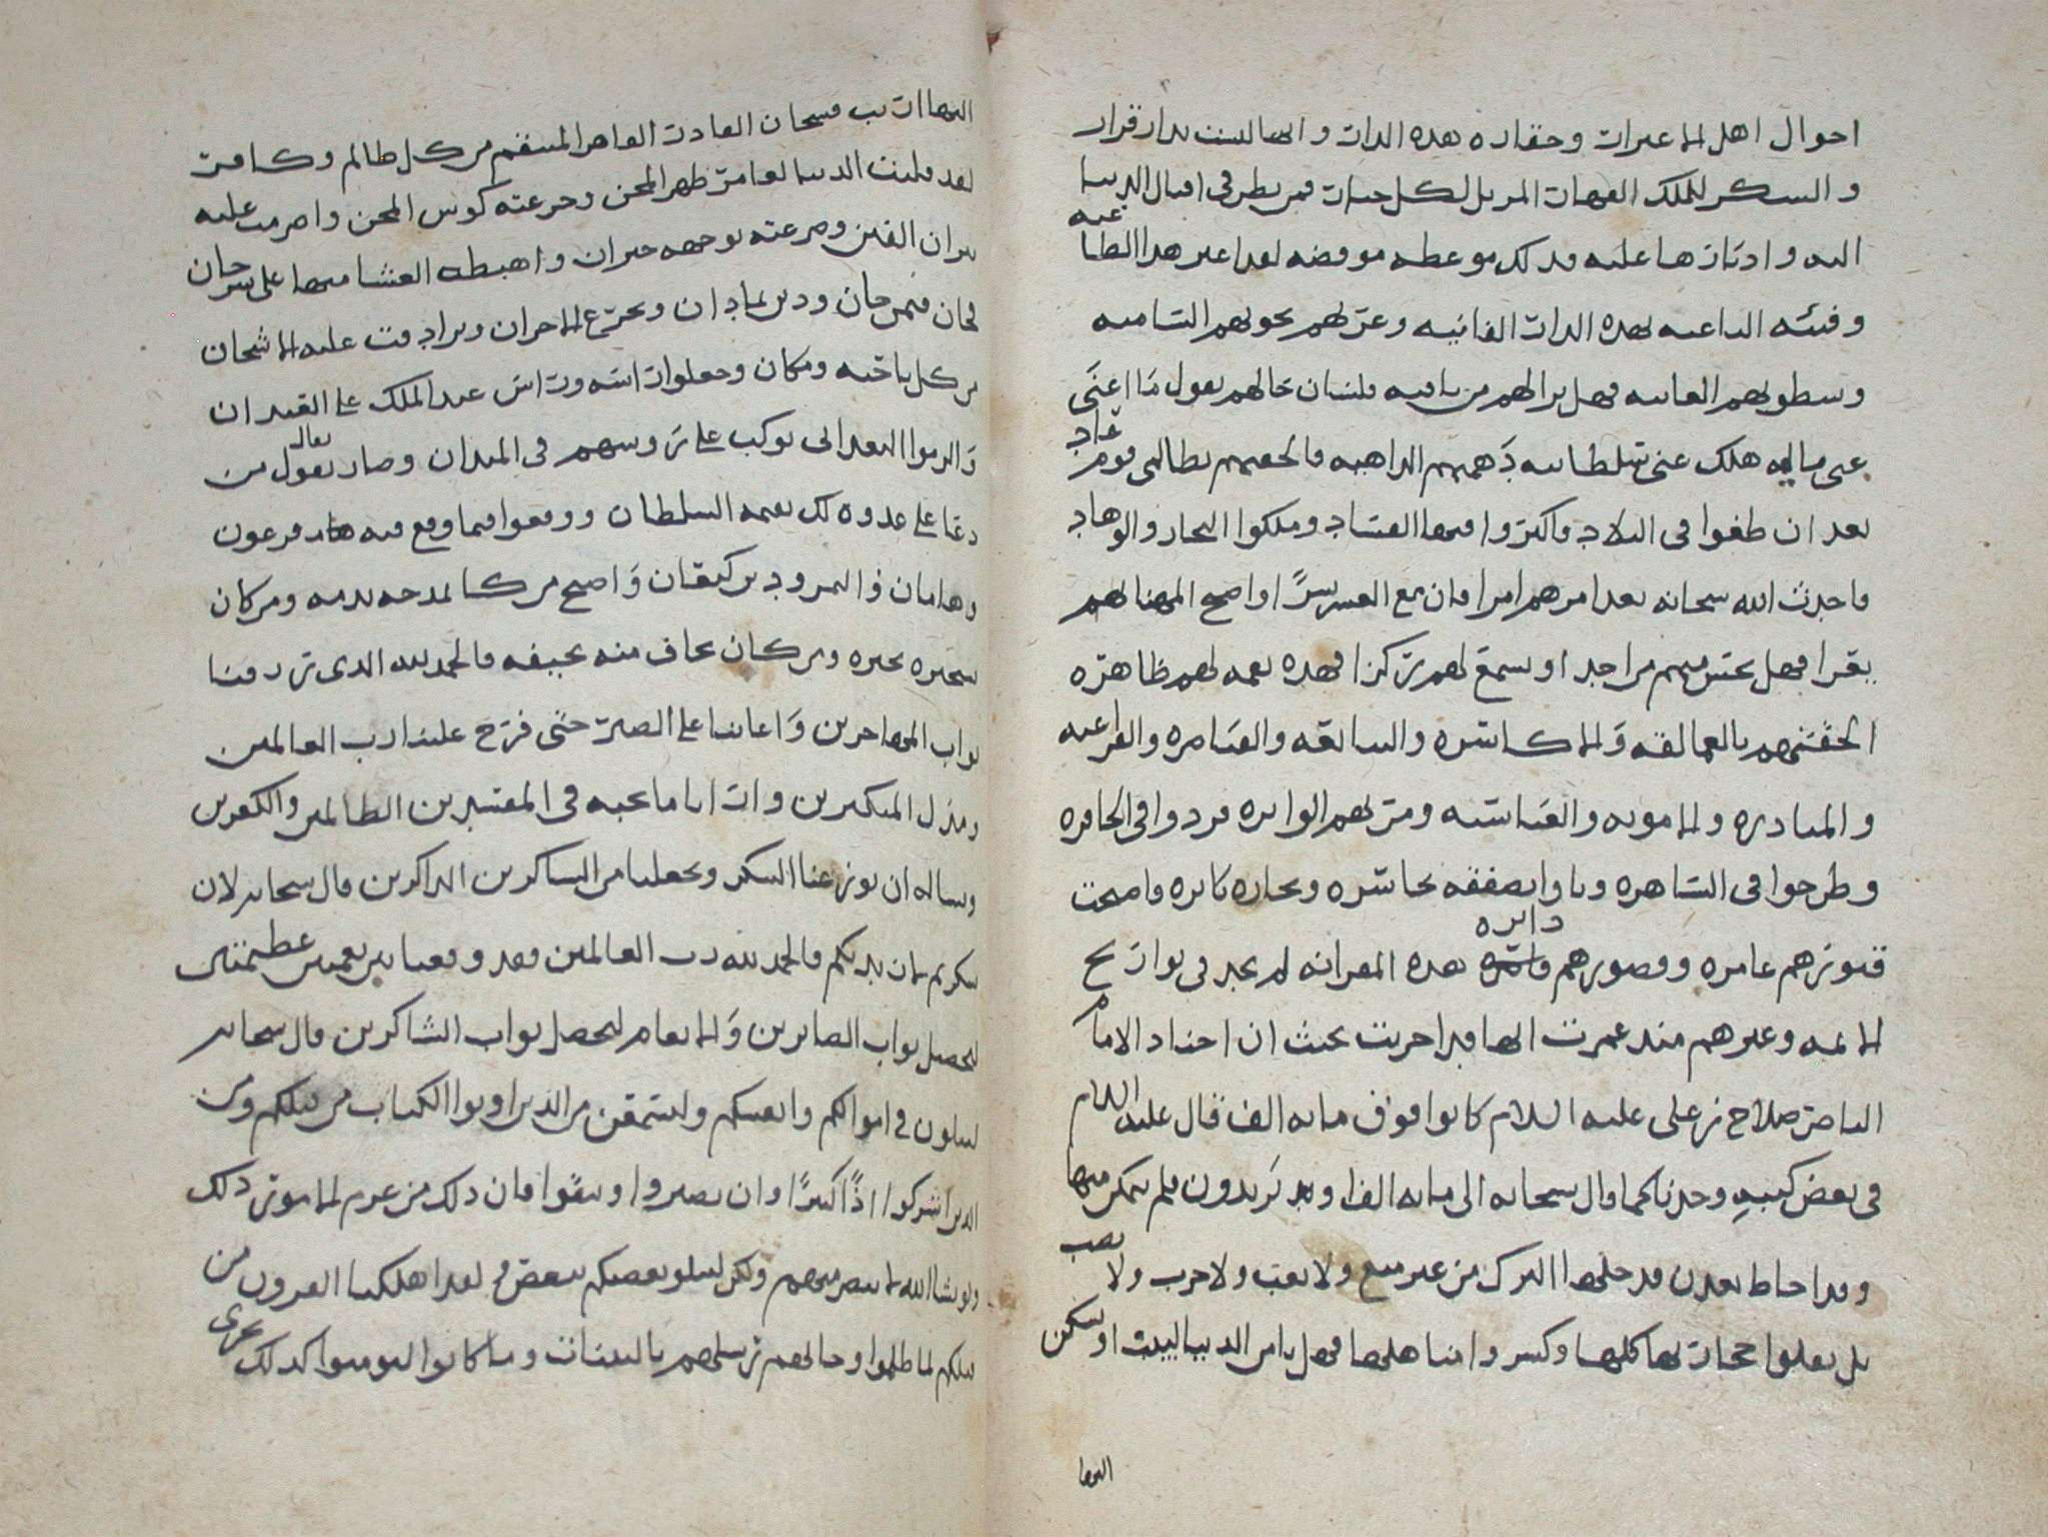 احوال اهل الاعتبار وحقاره هذه الدار وانها ليست بدار قرار
والشكر للملك القهار المزيل لكل جبار فمن نظر في اقبال الدنيا
اليه وادبارها عليه فذلك موعظه موقضه لقد اغتر هذا الطاغيه
وفئته الباغيه بهذه الدار الفانيه وغرتهم نحوتهم الساميه
وسطوتهم العاتيه فهل ترى لهم من باقيه فلسان حالهم يقول ما اغنى
عني ماليه هلك عني سلطانيه دهمتهم الداهيه فالحقتهم بطالبي قوم عاد
بعد ان طغوا في البلاد فاكثروا فيها الفساد وملكوا البحار والوهاد
فاحدث الله سبحانه بعد امرهم امرا فان مع العسر يسرًا واصبح المهنا لهم
يقرا فهل تحس منهم من احد او تسمع لهم ركزا فهذه نعمه لهم ظاهره
الحقتهم بالعمالقه والاكاسره والسابقه والقياصره والفراعنه
والمنادره والامويه والعباسيه ومن لهم الوابره فردوا في الحافره
وطرحوا في الساهره وباوا بصفقه خاسره وتجاره بائره فاصبحت
قبورهم عامره وقصورهم داثره هذه المعرانه لم نجد في تواريخ
الائمه وغيرهم منذ عمرت انها قد اخربت بحيث ان اجناد الامام
الناصر صلاح بن علي عليه السلام كانوا فوق مايه الف قال عليه السلام
في بعض كتبه وجدنا كما قال سبحانه الى مائه الف او يزيدون فلم يتمكن منها
وقد احاط بعدن قد خلها الترك من غير منع ولا تعب ولا حرب ولا نصب
بل نقلوا حجارتها كلها وكسروا مناهلها فهل يامن الدنيا لبيت او يسكن
اليها
اليها اريب فسبحان القادر القاهر المنتقم من كل ظالم وكافر
لقد قلبت الدنيا لعامر ظهر المجن وجرعته كوس المحن واضرمت عليه
نيران الفتن وصرعته بوجهه حيران واهبطه العشا منها على سرحان
فحان فيمن حان ودين بما دان وتجرع الاحزان وترادفت عليه الاشجان
من كل ناحيه ومكان وجعلوا راسه وراس عبد الملك على القيدان
والزموا البعداني يركب على روسهم في الميدان وصار يقول من
دعا على عدوه لك نعمه السلطان ووقعوا فيما وقع فيه فرعون
وهامان والنمرود بن كنعان واصبح من كان يمدحه يذمه ومن كان
يجيره يحيره ومن كان يخاف منه يخيفه فالحمد لله الذي رزقنا
ثواب المهاجرين واعاننا على الصبر حتى فرج علينا رب العالمين
ومذل المتكبرين وارانا ما نحبه في المفسدين الظالمين والكفرين
ونساله ان يوزعنا الشكر ويجعلنا من الشاكرين الذاكرين قال سبحانه لان
شكرتم لازيدنكم فالحمد لله رب العالمين فقد وقعنا بين نعمتين عظيمتين
ليحصل ثواب الصابرين والانعام ليحصل ثواب الشاكرين قال سبحانه
لتبلون في اموالكم وانفسكم ولتسمعن من الذين اوتوا الكتاب من قبلكم ومن
الذين اشركوا اذًا كثيرًا وان تصبروا وتتقوا فان ذلك من عزم الامور ذلك
ولو يشا الله لانتصر منهم ولكن ليبلو بعضكم ببعض ولقد اهلكنا القرون من
قبلكم لما ظلموا وجاتهم رسلهم بالبينات وما كانوا ليومنوا كذلك نجزي